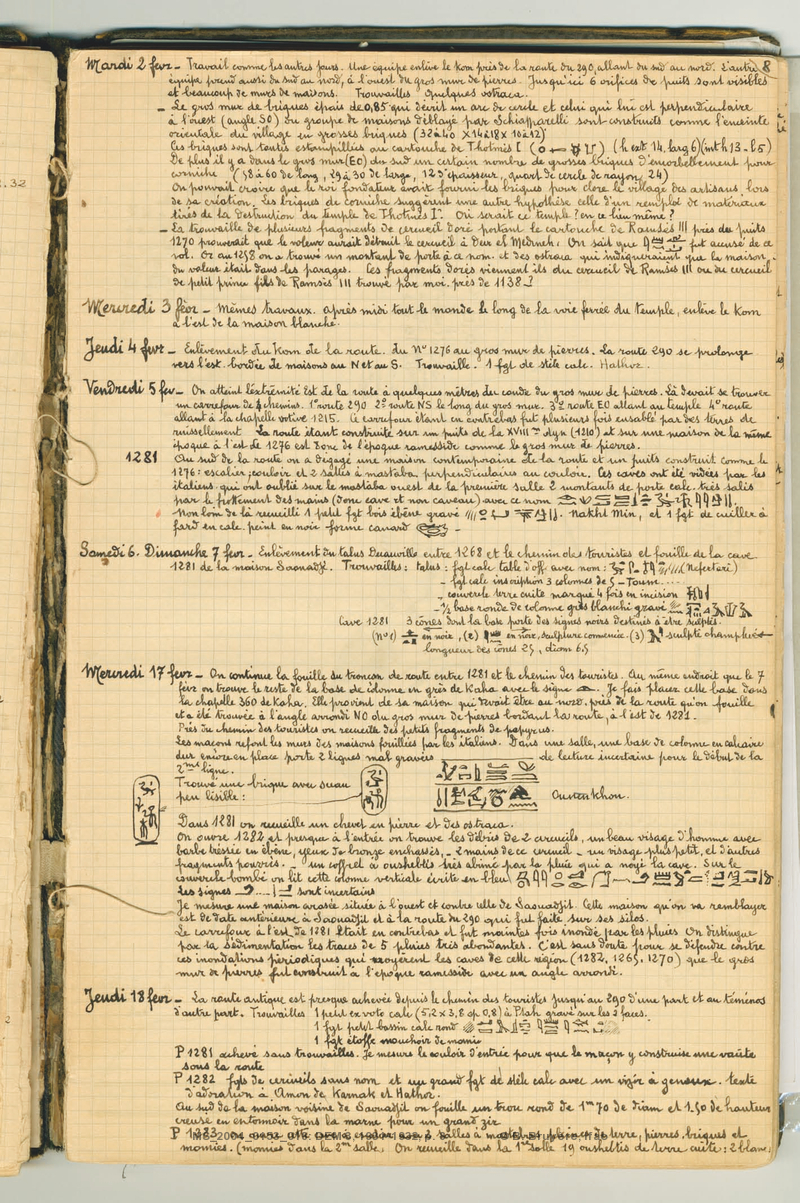 8
Mardi 2 fevr – Travail comme les autres jours. Une équipe enlève le kom près de la route du 290, allant du sud au nord. L'autre
équipe prend aussi du sud au nord, à l'ouest du gros mur de pierres. Jusqu'ici 6 orifices de puits sont visibles
et beaucoup de murs de maisons. Trouvailles quelques ostraca.
– Le gros mur de briques épais de 0,85 qui décrit un arc de cercle et celui qui lui est perpendiculaire
à l'ouest (angle SO) du groupe de maisons déblayé par Schiaffarelli sont construits comme l'enceinte
orientale du village en grosses briques (32 à 40 × 14 à 18 × 10 à 12)
Ces briques sont toutes estampillées au cartouche de Thotmès I
De plus il y a dans le gros mur (EO) du sud un certain nombre de grosses briques d'encorbellement pour
corniche (58 à 60 de long, 29 à 30 de large, 12 d'épaisseur, quart de cercle de rayon 24)
On pouvait croire que le roi fondateur avait fourni les briques pour clore le village des artisans, lors
de sa création. Les briques de corniche suggèrent une autre hypothèse celle d'un remploi de matériaux
tirés de la destruction du temple de Thotmès Iᵉʳ. Où serait ce temple? en ce lieu même?
– La trouvaille de plusieurs fragments de cercueil doré portant le cartouche de Ramsès III près du puits
1270 prouverait que le voleur aurait détruit le cercueil à Deir el Medineh: On sait que fut accusé de ce
vol. Or au 1258 on a trouvé un montant de porte à ce nom. et des ostraca qui indiqueraient que la maison
du voleur était dans les parages. Ces fragments dorés viennent ils du cercueil de Ramsès III ou du cercueil
de petit prince fils de Ramsès III trouvé par moi près de 1138_?
Mercredi 3 fevr – Mêmes travaux. après midi tout le monde le long de la voie ferrée du temple, enlève le kom
à l'est de la maison blanche.
Jeudi 4 fevr – Enlèvement du kom de la route. du Nº 1276 au gros mur de pierres. La route 290 se prolonge
vers l'est. bordée de maisons au N et au S. Trouvaille. 1 fgt de stèle calc. Hathor.
Vendredi 5 fev – On atteint l'extrémité Est de la route à quelques mètres du coude du gros mur de pierres. Là devait se trouver
un carrefour de 4 chemins. 1º route 290 2º route NS le long du gros mur. 3º route EO allant au temple 4º route
allant à la chapelle votive 1215. Ce carrefour étant en contrebas fut plusieurs fois ensablé par des terres de
ruissellement. La route étant construite sur un puits de la XVIIIᵐᵉ dyn (1210) et sur une maison de la même
époque à l'est de 1276 est donc de l'époque ramesside comme le gros mur de pierres.
1281
Au sud de la route on a dégagé une maison contemporaine de la route et un puits construit comme le
1276: escalier, couloir et 2 salles à mastaba perpendiculaires au couloir. Ces caves ont été vidées par les
italiens qui ont oublié sur le mastaba ouest de la première salle 2 montants de porte calc. très salis
par le frottement des mains (donc cave et non caveau) avec ce nom
Non loin de là recueilli 1 petit fgt bois ébène gravé Nakht Min, et 1 fgt de cuiller à
fard en calc. peint en noir forme canard
Samedi 6. Dimanche 7 fevr – Enlèvement du talus entre 1268 et le chemin des touristes et fouille de la cave
1281 de la maison Saouadjt. Trouvailles: talus: fgt calc table d'off. avec nom: (Nefertari)
– fgt calc inscription 3 colonnes de 5 – Toum....
– couvercle terre cuite marqué 4 fois en incision
– ½ base ronde de colonne grès blanchi gravé
Cave 1281 3 cônes dont la base porte des signes noirs destinés à être sculptés
(Nº 1) en noir, (2) en noir, sculpture commencée. (3) sculpté champlevé
longueur des cônes 25, diam 6.5
Mercredi 17 fevr – On continue la fouille du tronçon de route entre 1281 et le chemin des touristes. Au même endroit que le 7
fevr on trouve le reste de la base de colonne en grès de Kaha avec le signe. Je fais placer cette base dans
la chapelle 360 de Kaha. Elle provient de sa maison qui devait être au nord, près de la route qu'on fouille
et a été trouvée à l'angle arrondi NO du gros mur de pierres bordant la route, à l'est de 1281.
Près du chemin des touristes on recueille des petits fragments de papyrus.
Les maçons refont les murs des maisons fouillées par les italiens. Dans une salle, une base de colonne en calcaire
dur encore en place porte 2 lignes mal gravées de lecture incertaine pour le début de la
2ᵐᵉ ligne.
Trouvé une brique avec sceau
peu lisible:
Ounenkhon.
Dans 1281 on recueille un chevet en pierre et des ostraca.
On ouvre 1282 et presque à l'entrée on trouve les débris de 2 cercueils, un beau visage d'homme avec
barbe tressée en ébène, yeux de bronze enchassés, – 2 mains de ce cercueil – un visage plus petit, et d'autres
fragments pourris. – un coffret à oushebtis très abimé par la pluie qui a noyé la cave. Sur le
couvercle bombé on lit cette colonne verticale écrite en bleu
Les signes sont incertains
Je mesure une maison arasée située à l'ouest et contre celle de Saouadjit. Cette maison qu'on va remblayer
est de date antérieure à Saouadjit et à la route du 290 qui fut faite sur ses silos.
Le carrefour à l'est de 1281 était en contrebas et fut maintes fois inondé par les pluies. On distingue
par la sédimentation les traces de 5 pluies très abondantes. C'est sans doute pour se défendre contre
ces inondations périodiques qui noyèrent les caves de cette région (1282, 1265, 1270) que le gros
mur de pierres fut construit à l'époque ramesside avec un angle arrondi.
Jeudi 18 fevr – La route antique est presque achevée depuis le chemin des touristes jusqu'au 290 d'une part et au téménos
d'autre part. Trouvailles 1 petit ex voto calc (5,2 × 3,8 ep 0,8) à Ptah gravé sur les 2 faces.
1 fgt petit bassin calc rond
1 fgt étoffe mouchoir de momie
P 1281 achevé sans trouvailles. Je mesure le couloir d'entrée pour que le maçon y construise une voûte
sous la route
P 1282 fgts de cercueils sans nom et un grand fgt de stèle calc avec un vizir à genoux. texte
d'adoration à Amon de Karnak et Hathor.
Au sud de la maison voisine de Saouadjit on fouille un trou rond de 1ᵐ70 de diam et 1.50 de hauteur
creusé en entonnoir dans la marne pour un grand zir
P 1283 salles à terre, pierres, briques et
momies. (momies dans la 2ᵐᵉ salle. On recueille dans la 1ʳᵉ salle 19 oushebtis de terre cuite: 2 blanc,